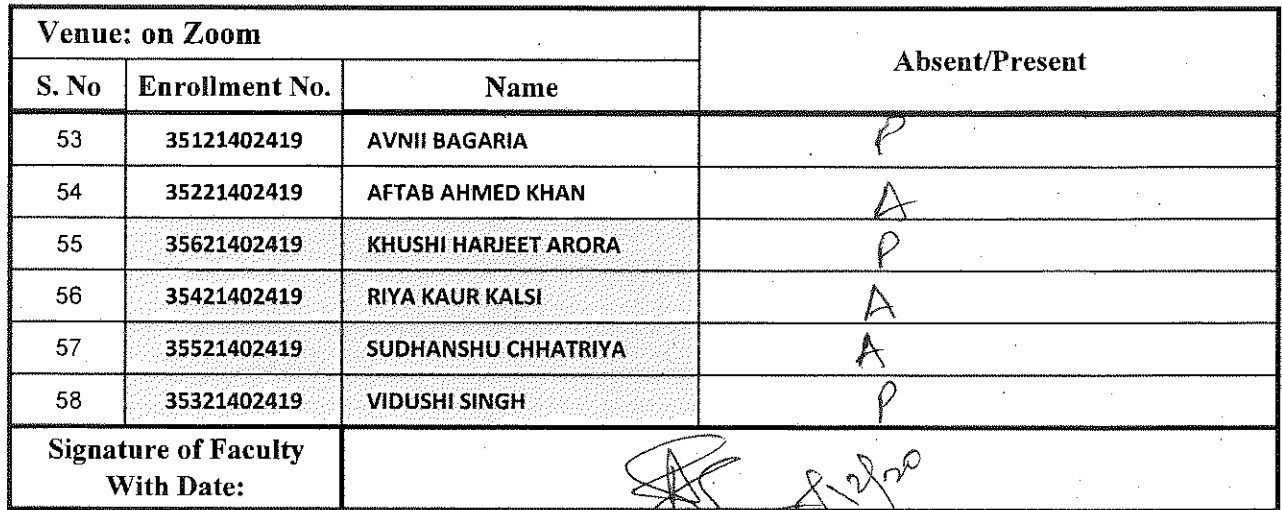 Venue: on Zoom
Absent/Present
S. No Enrollment No. Name
53 35121402419 AVNII BAGARIA P
54 35221402419 AFTAB AHMED KHAN A
55 35621402419 KHUSHI HARJEET ARORA P
56 35421402419 RIYA KAUR KALSI A
57 35521402419 SUDHANSHU CHHATRIYA A
58 35321402419 VIDUSHI SINGH P
Signature of Faculty
With Date: